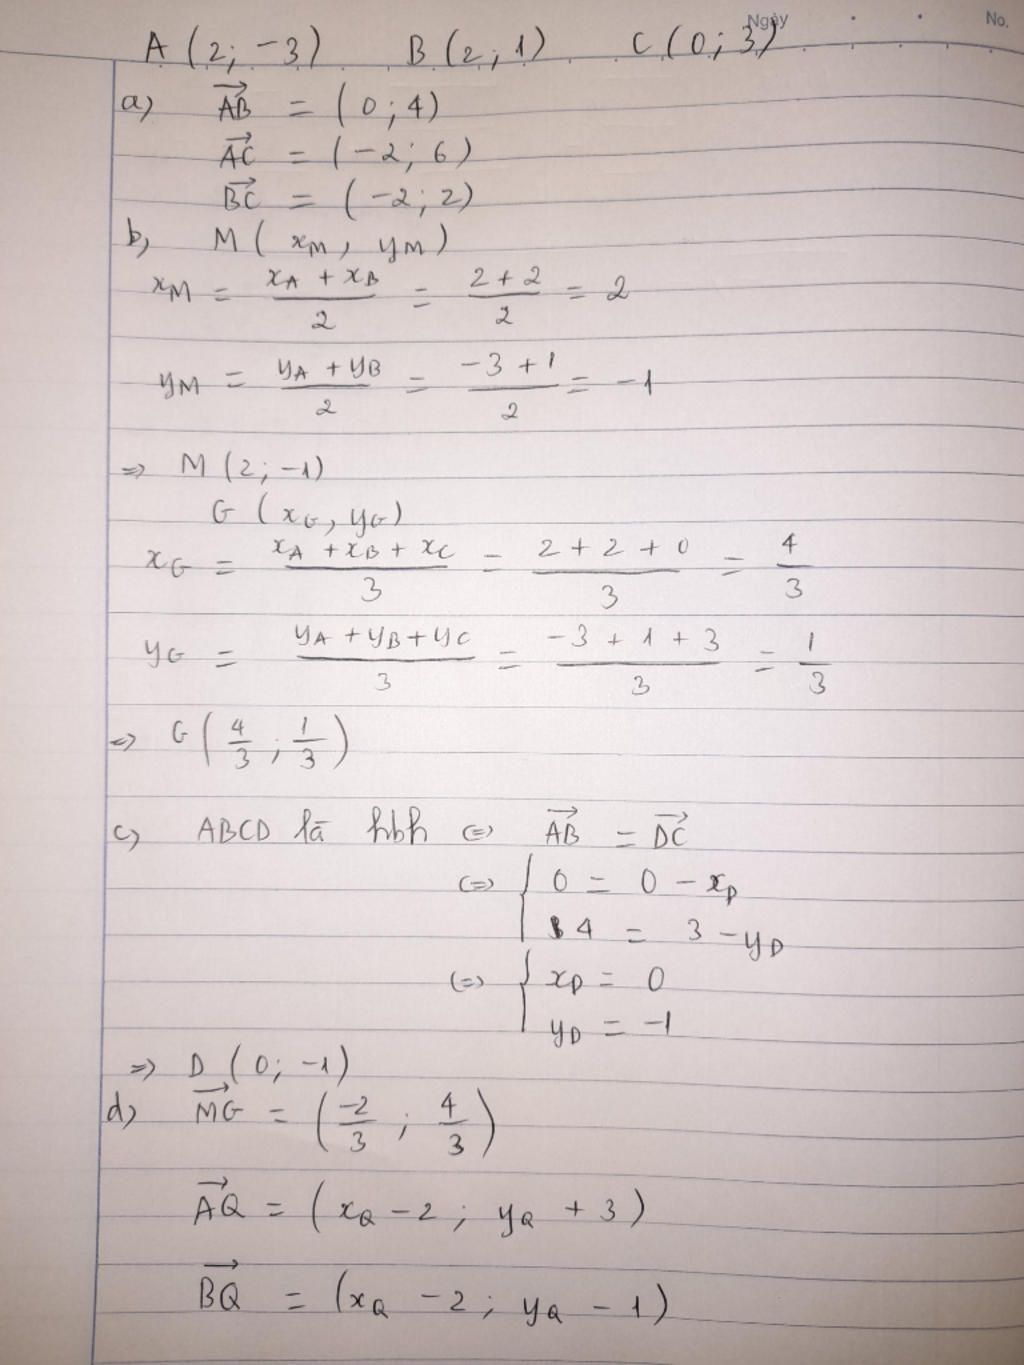 Ngày No.
A (2; -3) B (2; 1) C (0; 3)
a) \overrightarrow{AB} = (0; 4)
\overrightarrow{AC} = (-2; 6)
\overrightarrow{BC} = (-2; 2)
b) M( x_M, y_M)
x_M = \frac{x_A + x_B}{2} = \frac{2 + 2}{2} = 2
y_M = \frac{y_A + y_B}{2} = \frac{-3 + 1}{2} = -1
=> M (2; -1)
G (x_G, y_G)
x_G = \frac{x_A + x_B + x_C}{3} = \frac{2 + 2 + 0}{3} = \frac{4}{3}
y_G = \frac{y_A + y_B + y_C}{3} = \frac{-3 + 1 + 3}{3} = \frac{1}{3}
=> G (\frac{4}{3}; \frac{1}{3})
c) ABCD là hbh <=> \overrightarrow{AB} = \overrightarrow{DC}
<=> { 0 = 0 - x_D
4 = 3 - y_D
<=> { x_D = 0
y_D = -1
=> D (0; -1)
d) \overrightarrow{MG} = (\frac{-2}{3}; \frac{4}{3})
\overrightarrow{AQ} = (x_Q - 2; y_Q + 3)
\overrightarrow{BQ} = (x_Q - 2; y_Q - 1)